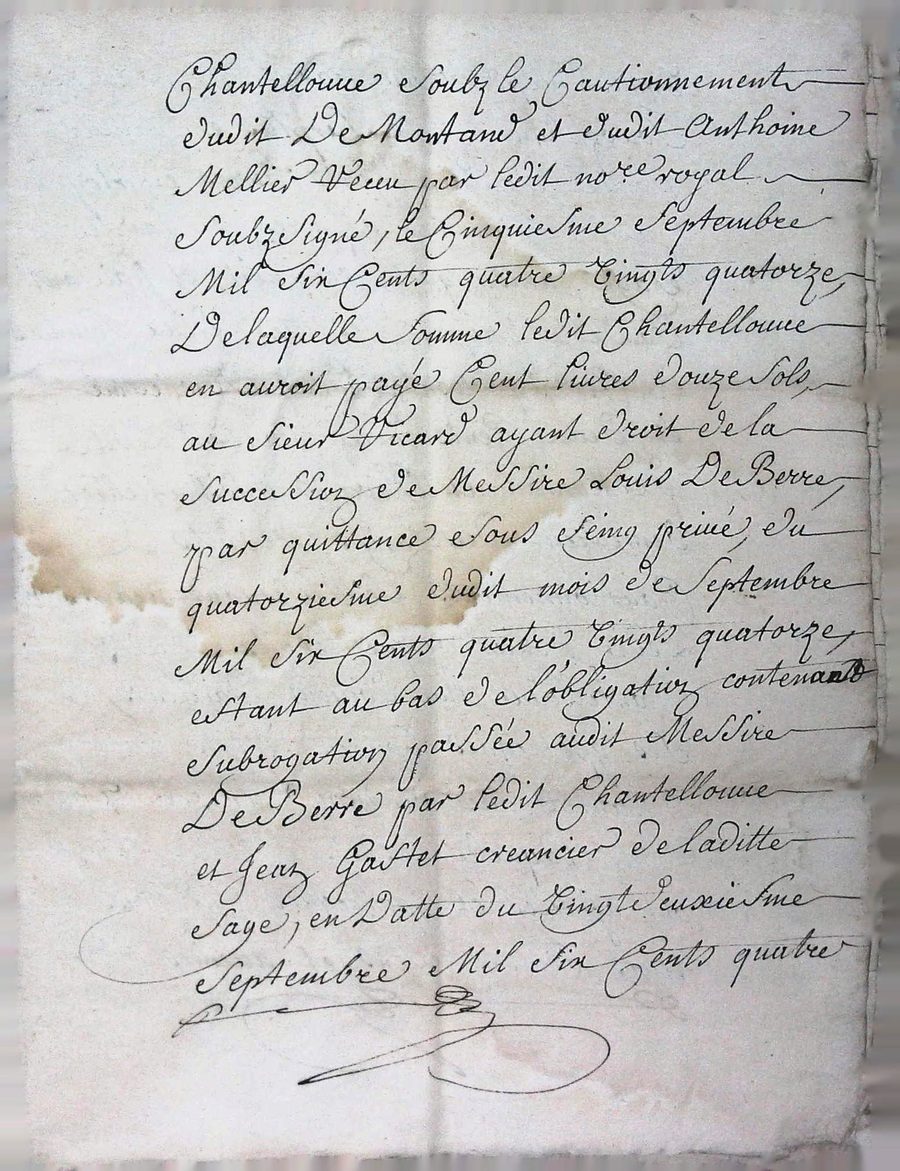 Chantellouue soubz le Cautionnement
dudit De Montand et dudit Anthoine
Mellier Receu par ledit no.re royal
soubzsigné, le Cinquiesme septembre
Mil six Cents quatre Vingts quatorze,
De laquelle somme ledit Chantellouue
en auroit payé Cent livres douze sols,
au sieur Vicard ayant droit de la
succession de Messire Louis De Berre,
par quittance sous séing priué, du
quatorziesme dudit mois de Septembre
Mil six Cents quatre Vingts quatorze,
estant au bas de l'obligation contenand
subrogation passée audit Messire
De Berre par ledit Chantellouue
et Jean Gastet creancier de laditte
Saye, en Datte du Vingt deuxiesme
septembre Mil six Cents quatre